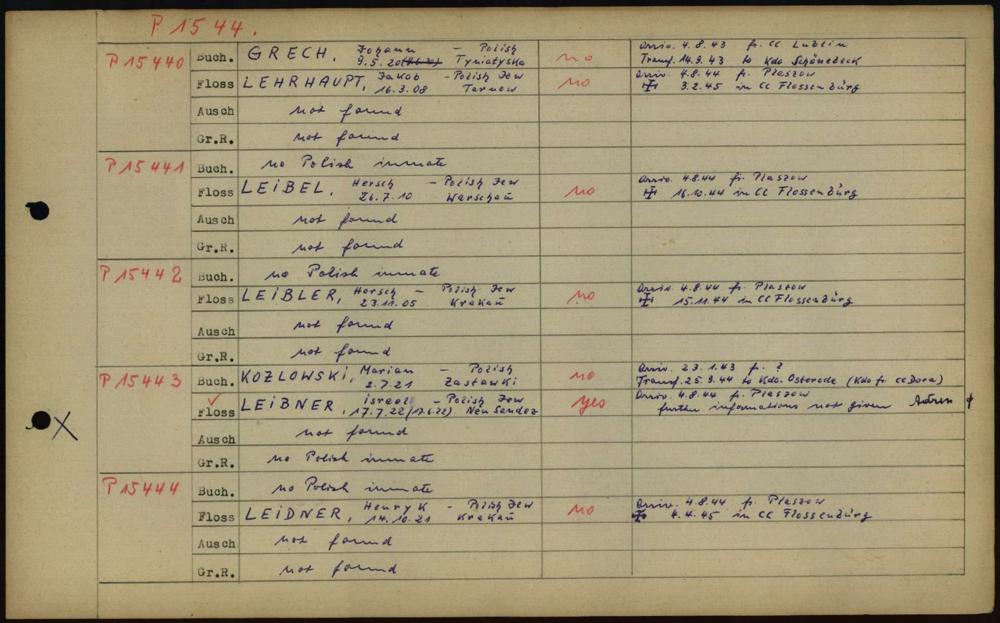 P 1544.
P 15440 Buch. GRECH, Johann – Polish no Arriv. 4.8.43 fr. CC Lublin
9.5.20 Tyniatyska Transf. 14.9.43 to Kdo Schönebeck
Floss LEHRHAUPT, Jakob – Polish Jew no Arriv. 4.8.44 fr. Plaszow
16.3.08 Tarnow 3.2.45 in CC Flossenbürg
Ausch not found
Gr.R. not found
P 15441 Buch. no Polish inmate
Floss LEIBEL, Hersch – Polish Jew no Arriv. 4.8.44 fr. Plaszow
26.7.10 Warschau 16.10.44 in CC Flossenbürg
Ausch not found
Gr.R. not found
P 15442 Buch. no Polish inmate
Floss LEIBLER, Hersch – Polish Jew no Arriv. 4.8.44 fr. Plaszow
23.11.05 Krakau 15.11.44 in CC Flossenbürg
Ausch not found
Gr.R. not found
P 15443 Buch. KOZLOWSKI, Marian – Polish no Arriv. 23.1.43 fr. ?
2.7.21 Zastawki Transf. 25.9.44 to Kdo. Osterode (Kdo fr. CC Dora)
Floss LEIBNER, Israel – Polish Jew yes Arriv. 4.8.44 fr. Plaszow
17.7.22 (17.6.22) Neu Sandez further informations not given
X
Ausch not found
Gr.R. no Polish inmate
P 15444 Buch. no Polish inmate
Floss LEIDNER, Henryk – Polish Jew no Arriv. 4.8.44 fr. Plaszow
14.10.21 Krakau 4.4.45 in CC Flossenbürg
Ausch not found
Gr.R. not found